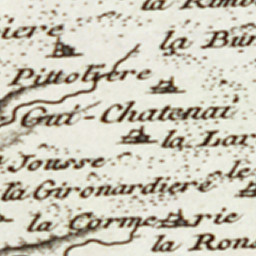 la
iere
la Bur
Pittoliere
Gui-Chatenai
la Lar
Jousse
le
la Gironardiere
la Corme rie
la Rons